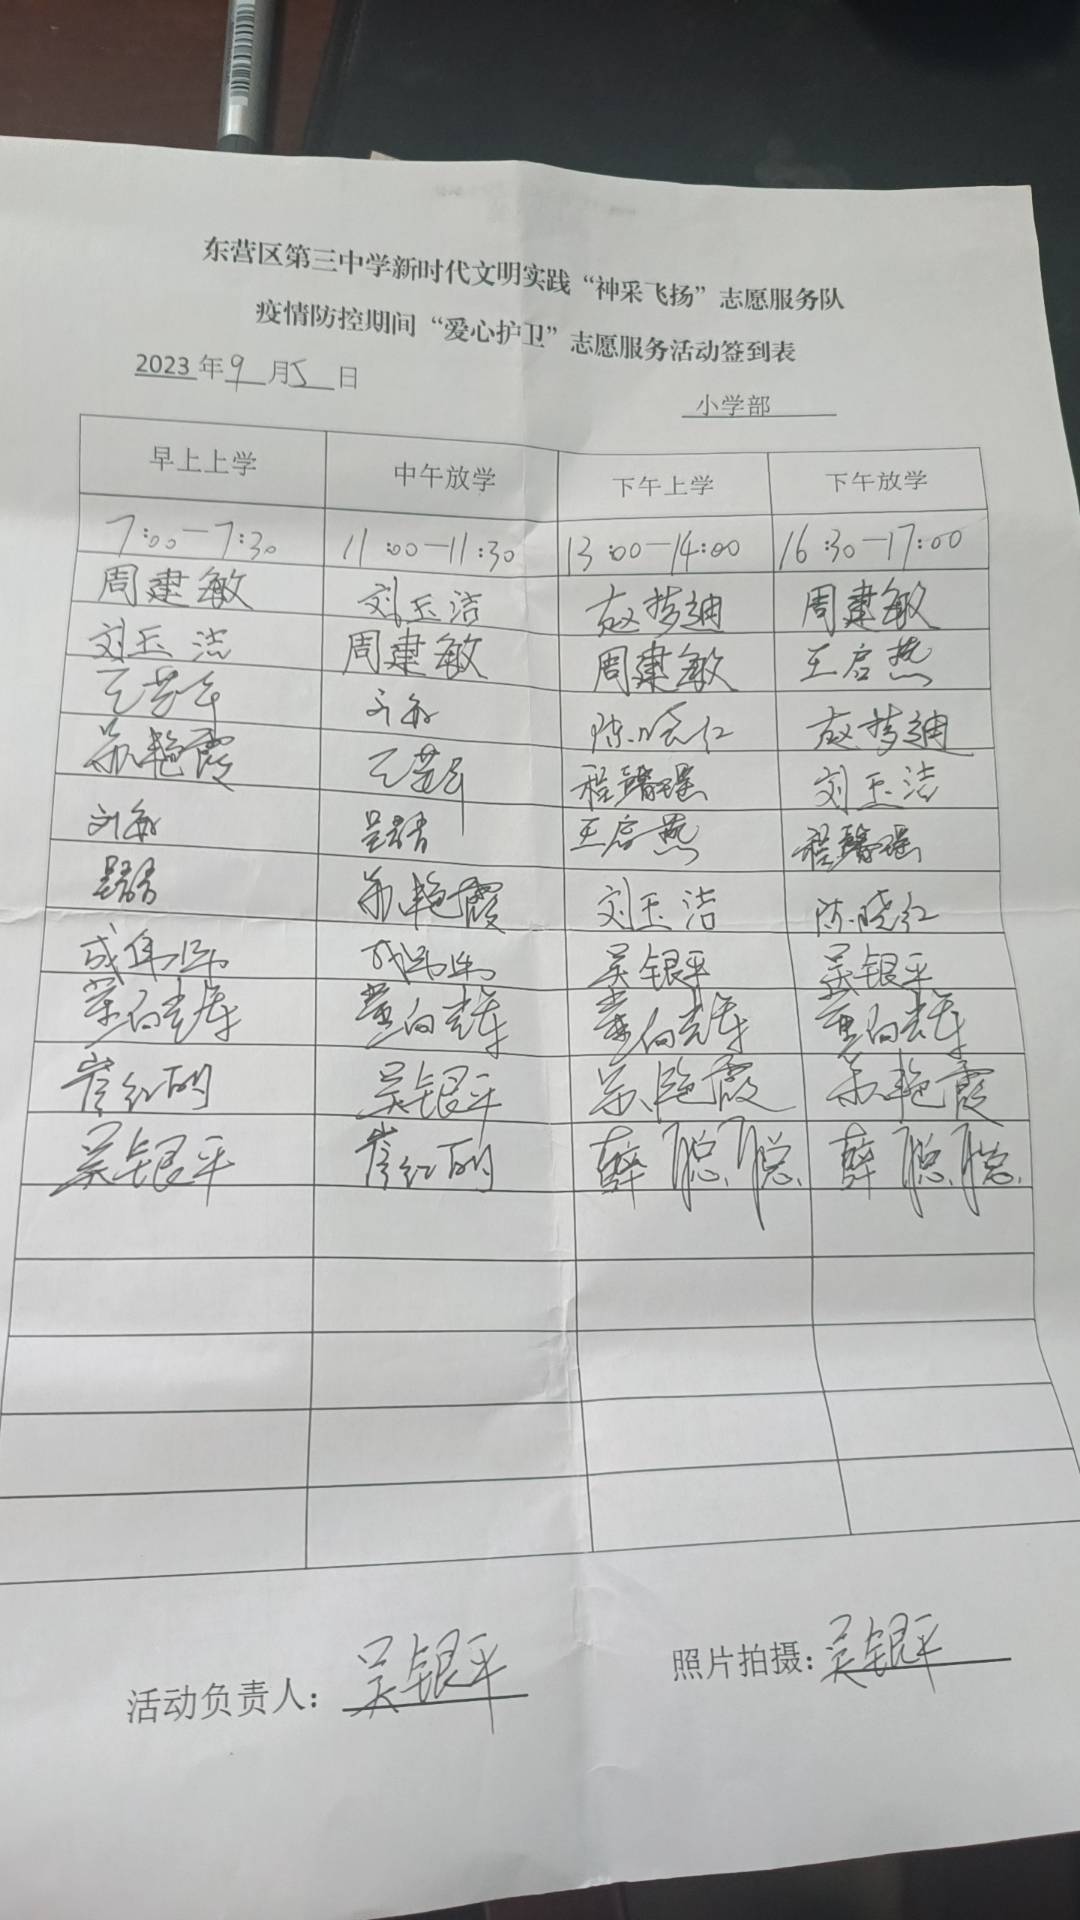 东营区第三中学新时代文明实践“神采飞扬”志愿服务队
疫情防控期间“爱心护卫”志愿服务活动签到表
2023年9月5日
小学部
早上上学 中午放学 下午上学 下午放学
7:00-7:30 11:00-11:30 13:00-14:00 16:30-17:00
周建敏 刘玉洁 赵梦迪 周建敏
刘玉洁 周建敏 周建敏 王启燕
刘敏 陈晓红 赵梦迪
苏艳霞 程馨瑶 刘玉洁
刘敏 王启燕 程馨瑶
苏艳霞 刘玉洁 陈晓红
成伟伟 成伟伟 吴银平 吴银平
董向春 董向春 董向春 董向春
崔红 吴银平 苏艳霞 苏艳霞
吴银平 崔红 薛聪聪 薛聪聪
活动负责人：吴银平
照片拍摄：吴银平